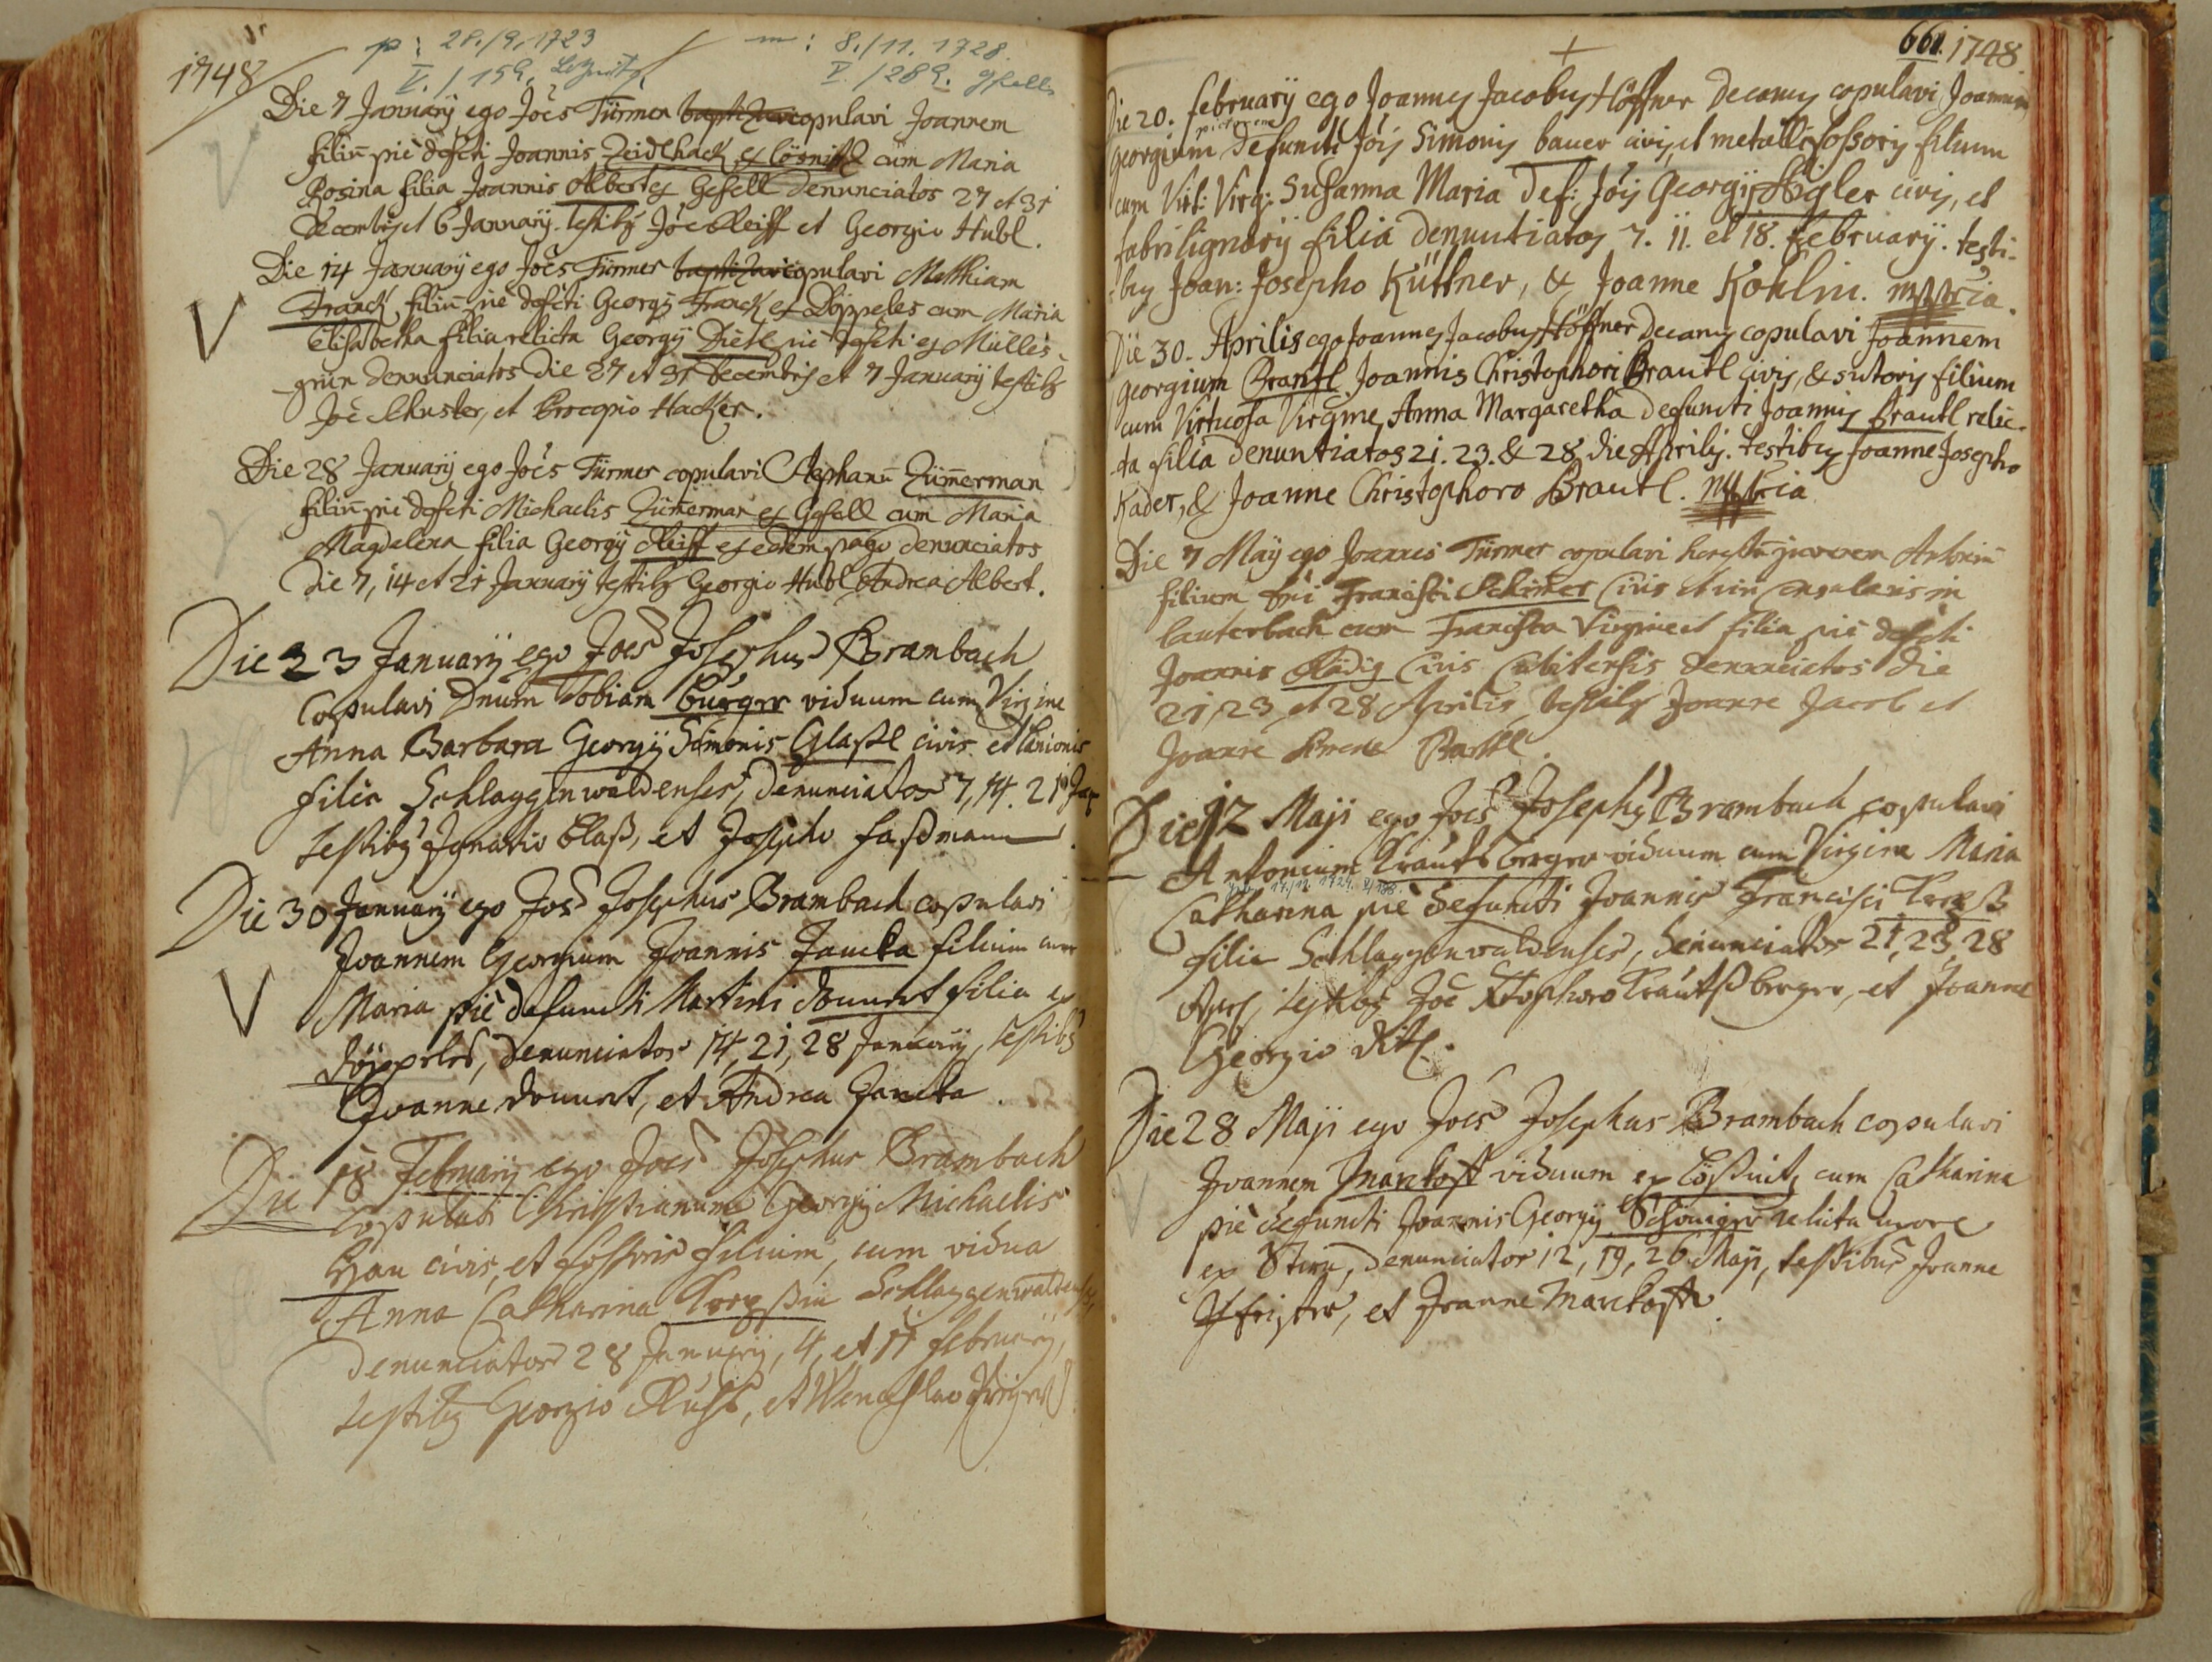 1748
p: 28./9. 1723 m: 8./11. 1728.
V. / 159. V. / 289. Gfell
Die 7 Januarÿ ego Joes Türmer baptizavi copulavi Joannem
filiū piè defcti Joannis Zeidlhack ex Lösnitz cum Maria
Rosina filia Joannis Albert ex Gefell denunciatos 27 et 31
Decembris et 6 Januarÿ. testibq Joe Reiff et Georgio Hubl.
Die 14 Januarÿ ego Joes Türmer baptizavi copulavi Matthiam
Franck filiū piè defcti Georgÿ Franck ex Döppeles cum Maria
Elisabetha filia relicta Georgÿ Dietl piè defcti ex Mülles-
grün denunciatos die 27 et 31 Decembris et 7 Januarÿ testibq
Joe Schuster, et Procopio Hacker.
Die 28 Januarÿ ego Joes Türmer copulavi Stephanū Zümerman
filiū piè defcti Michaelis Zümerman ex Gefell cum Maria
Magdalena filia Georgÿ Reiff ex eodem pago denunciatos
die 7, 14 et 21 Januarÿ testibq Georgio Hubl Andrea Albert.
Die 23 Januarÿ ego Joes Josephus Brambach
Copulavi Dnum Tobiam Burger viduum cum Virgine
Anna Barbara Georgÿ Simonis Glaßl civis et lanionis
filia Schlaggenwaldenses, denunciatos 7, 14. 21 Jan
testibq Ignatio Claß, et Josepho Faßmann.
Die 30 Januarÿ ego Joes Josephus Brambach copulavi
Joannem Georgium Joannis Jancka filium cum
Maria piè defuncti Martini Donnert filia ex
Döppeles, denunciatos 14, 21, 28 Januarÿ, testibq
Joanne Donnert, et Andrea Jancka.
Die 18 Februarÿ ego Joes Josephus Brambach
copulavi Christianum Georgÿ Michaelis
Han civis, et fossoris filium, cum vidua
Anna Catharina Schlaggenwaldenses,
denunciatos 28 Januarÿ, 4, et 11 Februarÿ,
testibq Georgio Rußl, et Wenceslao
661. 1748.
Die 20. februarÿ ego Joannes Jacobus Höffner Decanus copulavi Joannem
Georgium defuncti Jois Simonis bauer civis, et metalli-fossoris filium
cum Virt: Virg: Susanna Maria def: Jois Georgÿ Stigler civis, et
fabrilignarÿ filia denuntiatos 7. 11. et 18. februarÿ. testi-
-bus Joan: Josepho Küttner, & Joanne Kohlm. mppria.
Die 30. Aprilis ego Joannes Jacobus Höffner Decanus copulavi Joannem
georgium Brantl Joannis Christophori Brautl civis, & sutoris filium
cum Virtuosa Virgine Anna Margaretha defuncti Joannis Brautl relic-
-ta filia denuntiatos 21. 23. & 28 die Aprilis. testibus Joanne Josepho
Kader, & Joanne Christophoro Brautl. mppria
Die 7 Maÿ ego Joannes Türmer copulavi honestū juvenem Antoniū
filium Dni Francisci Schirmer Civis et viri consularis in
Lauterbach cum Francisca Virgine et filia piè defcti
Joannis Rädig Civis Cubitensis denunciatos die
21, 23, et 28 Aprilis, testibq Joanne Jacob et
Joanne Simone Bartl.
Die 12 Maji ego Joes Josephq Brambach copulavi
Antonium Krautsberger viduum cum Virgine Maria
Catharina piè defuncti Joannis Francisci
filia Schlaggenwaldenses, denunciatos 21, 23, 28
Apr, testibq Joe Xtophoro Krautßberger, et Joanne
Georgio Ditl.
Die 28 Maji ego Joes Josephus Brambach copulavi
Joannem Marckost viduum ex Lößnitz cum Catharina
piè defuncti Joannis Georgÿ Schöniger relicta uxore
ex Stirn, denunciatos 12, 19, 26 Maji, testibus Joanne
et Joanne Marckost.